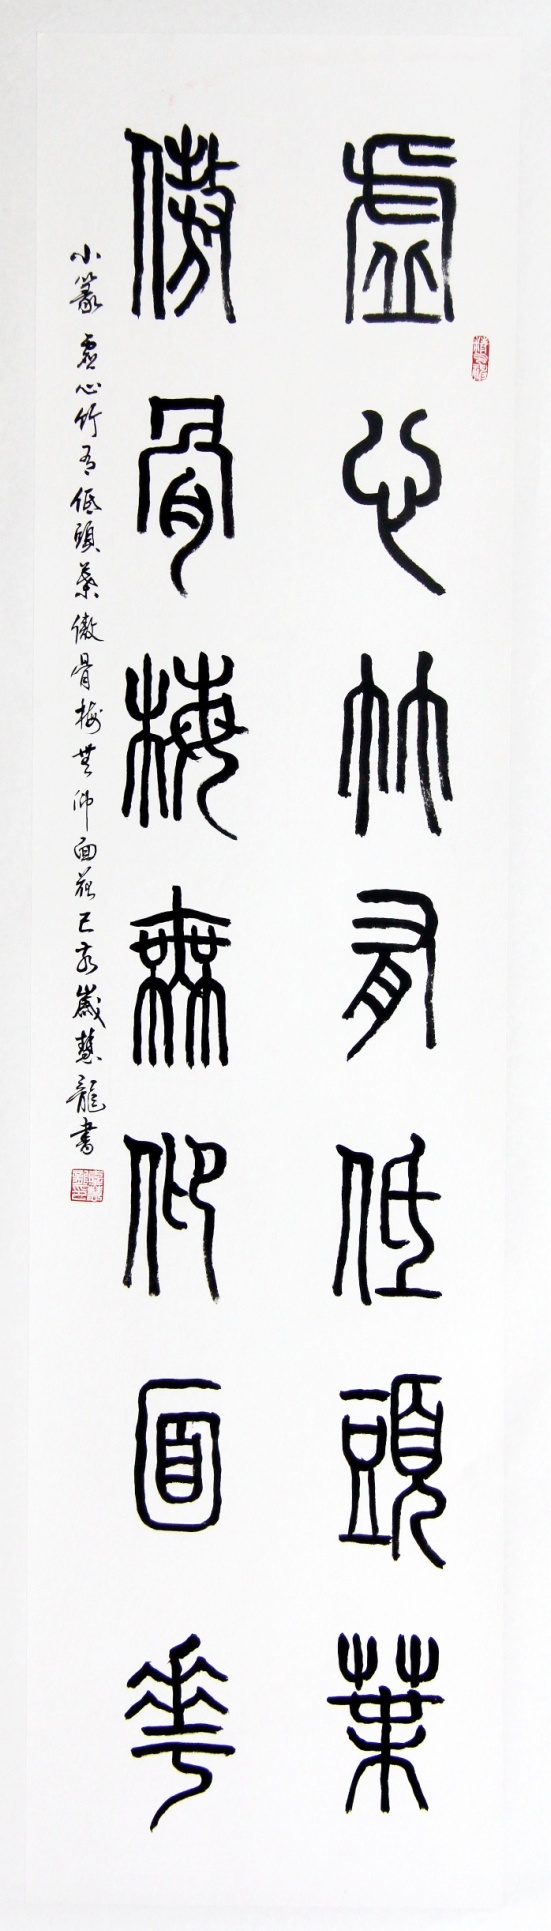 虛心竹有低頭葉
傲骨梅無仰面花
小篆 虛心竹有低頭葉傲骨梅無仰面花己亥歲慧龍書